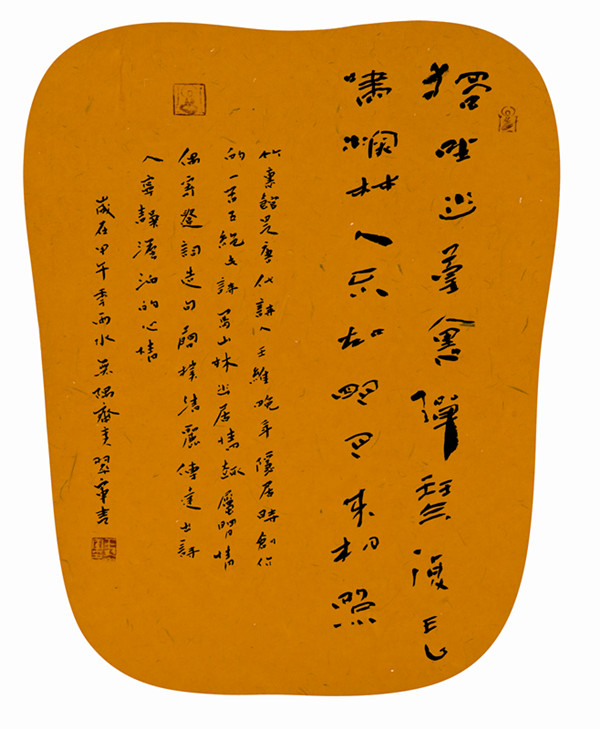 獨坐幽篁裏彈琴復長
嘯深林人不知明月來相照
竹裏館是唐代詩人王維晚年隱居時創作
的一首五絕此詩寫山林幽居情趣屬閒情
偶寄遣詞造句簡樸清麗傳達出詩
人寧謐澹泊的心情
歲在甲午雨水無隅齋主翠書